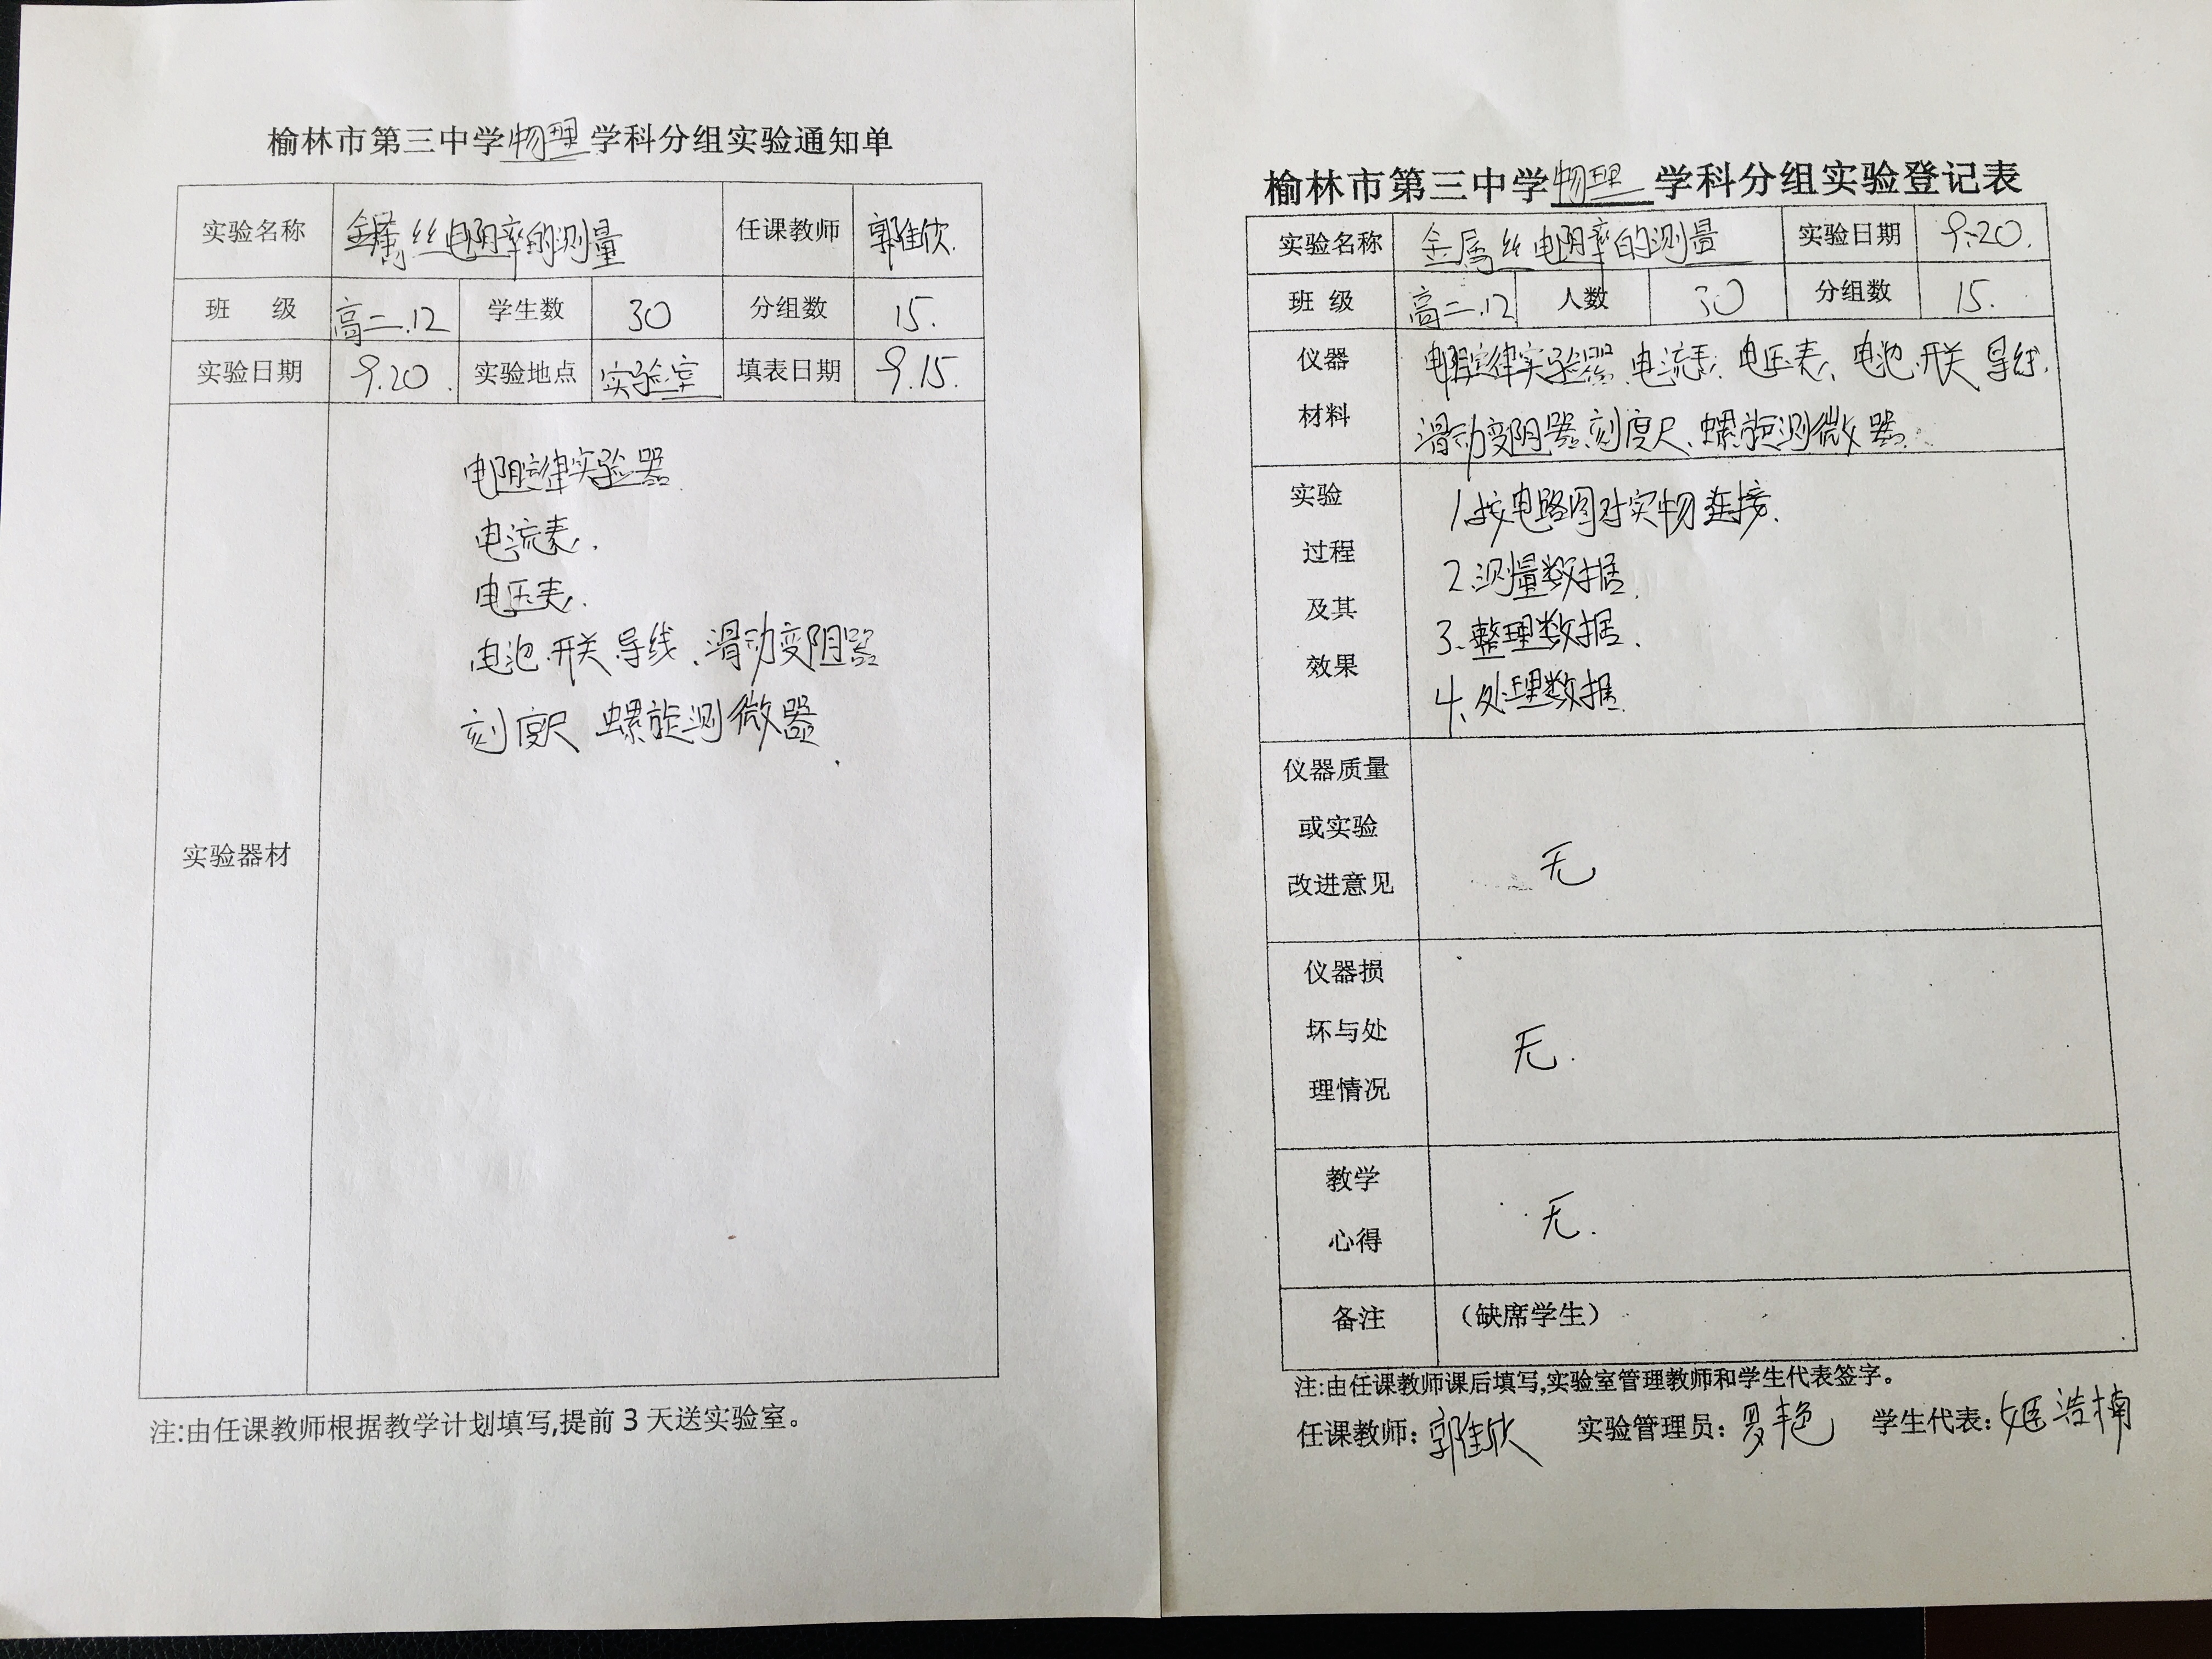 榆林市第三中学物理学科分组实验通知单
实验名称 金属丝电阻率的测量 任课教师 郭佳欣.
班 级 高二.12 学生数 30 分组数 15.
实验日期 9.20. 实验地点 实验室 填表日期 9.15.
实验器材
电阻定律实验器.
电流表.
电压表.
电池.开关 导线、滑动变阻器
刻度尺 螺旋测微器.
注:由任课教师根据教学计划填写,提前3天送实验室。
榆林市第三中学物理学科分组实验登记表
实验名称 金属丝电阻率的测量 实验日期 9.20.
班 级 高二.12 人数 30 分组数 15.
仪器
材料
电阻定律实验器、电流表、电压表、电池.开关 导线.
滑动变阻器、刻度尺、螺旋测微器.
实验
过程
及其
效果
1.按电路图对实物连接.
2.测量数据.
3.整理数据.
4.处理数据.
仪器质量
或实验
改进意见
无
仪器损
坏与处
理情况
无.
教学
心得
无.
备注 （缺席学生）
注:由任课教师课后填写,实验室管理教师和学生代表签字。
任课教师: 郭佳欣 实验管理员: 艳 学生代表: 姬浩楠